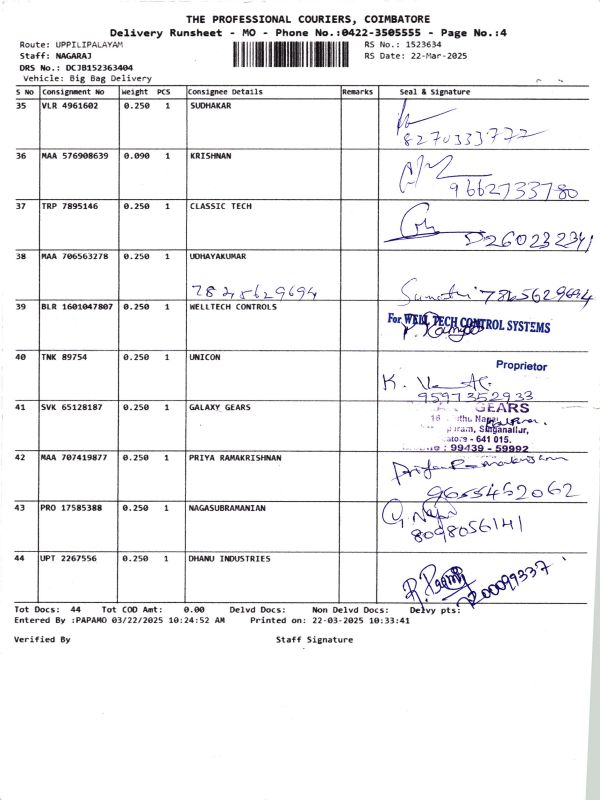 THE PROFESSIONAL COURIERS, COIMBATORE
Delivery Runsheet - MO - Phone No.:0422-3505555 - Page No.:4
Route: UPPILIPALAYAM RS No.: 1523634
Staff: NAGARAJ RS Date: 22-Mar-2025
DRS No.: DCJB152363404
Vehicle: Big Bag Delivery
S No Consignment No Weight PCS Consignee Details Remarks Seal & Signature
35 VLR 4961602 0.250 1 SUDHAKAR
8270333772
36 MAA 576908639 0.090 1 KRISHNAN
9662733780
37 TRP 7895146 0.250 1 CLASSIC TECH
38 MAA 706563278 0.250 1 UDHAYAKUMAR
7865629694 Sumathi 7865629694
39 BLR 1601047807 0.250 1 WELLTECH CONTROLS
For WELL TECH CONTROL SYSTEMS
40 TNK 89754 0.250 1 UNICON
Proprietor
9597352933
41 SVK 65128187 0.250 1 GALAXY GEARS
GEARS
Singanallur,
641 015.
: 99439 - 59992
42 MAA 707419877 0.250 1 PRIYA RAMAKRISHNAN
Priya Ramakrishnan
9655462062
43 PRO 17585388 0.250 1 NAGASUBRAMANIAN
8098056141
44 UPT 2267556 0.250 1 DHANU INDUSTRIES
Tot Docs: 44 Tot COD Amt: 0.00 Delvd Docs: Non Delvd Docs: Delvy pts:
Entered By :PAPAMO 03/22/2025 10:24:52 AM Printed on: 22-03-2025 10:33:41
Verified By Staff Signature